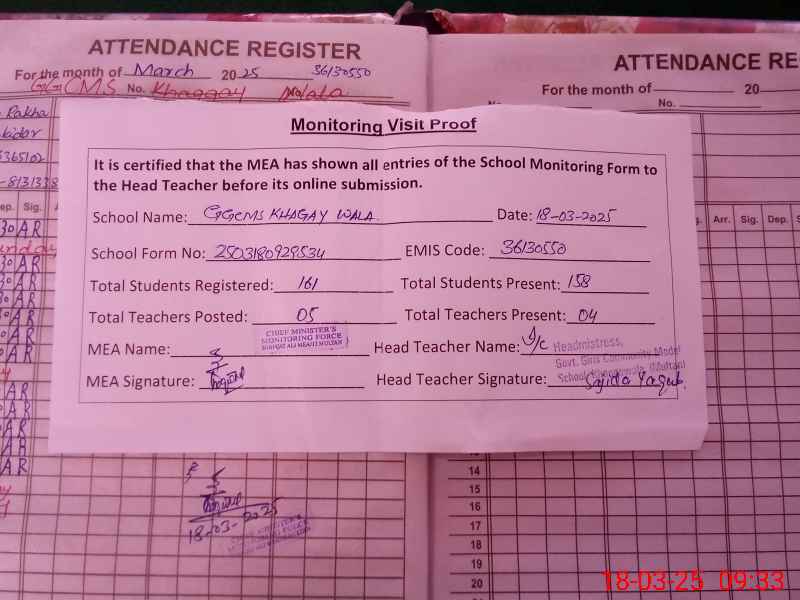 ATTENDANCE REGISTER
For the month of March 2025 36130550
GGCMS No. Khaggay Wala
Rakha
kidar
365102
-8131338
ep. Sig.
ATTENDANCE RE
For the month of 20
No.
Arr. Sig. Dep. S
Monitoring Visit Proof
It is certified that the MEA has shown all entries of the School Monitoring Form to
the Head Teacher before its online submission.
School Name: GGCMS KHAGAY WALA. Date: 18-03-2025
School Form No: 2503180929534 EMIS Code: 36130550
Total Students Registered: 161 Total Students Present: 158
Total Teachers Posted: 05 Total Teachers Present: 04
CHIEF MINISTER'S
MONITORING FORCE
MEA Name: Head Teacher Name: I/C Headmistress,
Govt. Girls Community Model
MEA Signature: Head Teacher Signature: Sajida Yaqub.
School (Multan)
18-03-2025
14
15
16
17
18
19
20
18-03-25 09:33